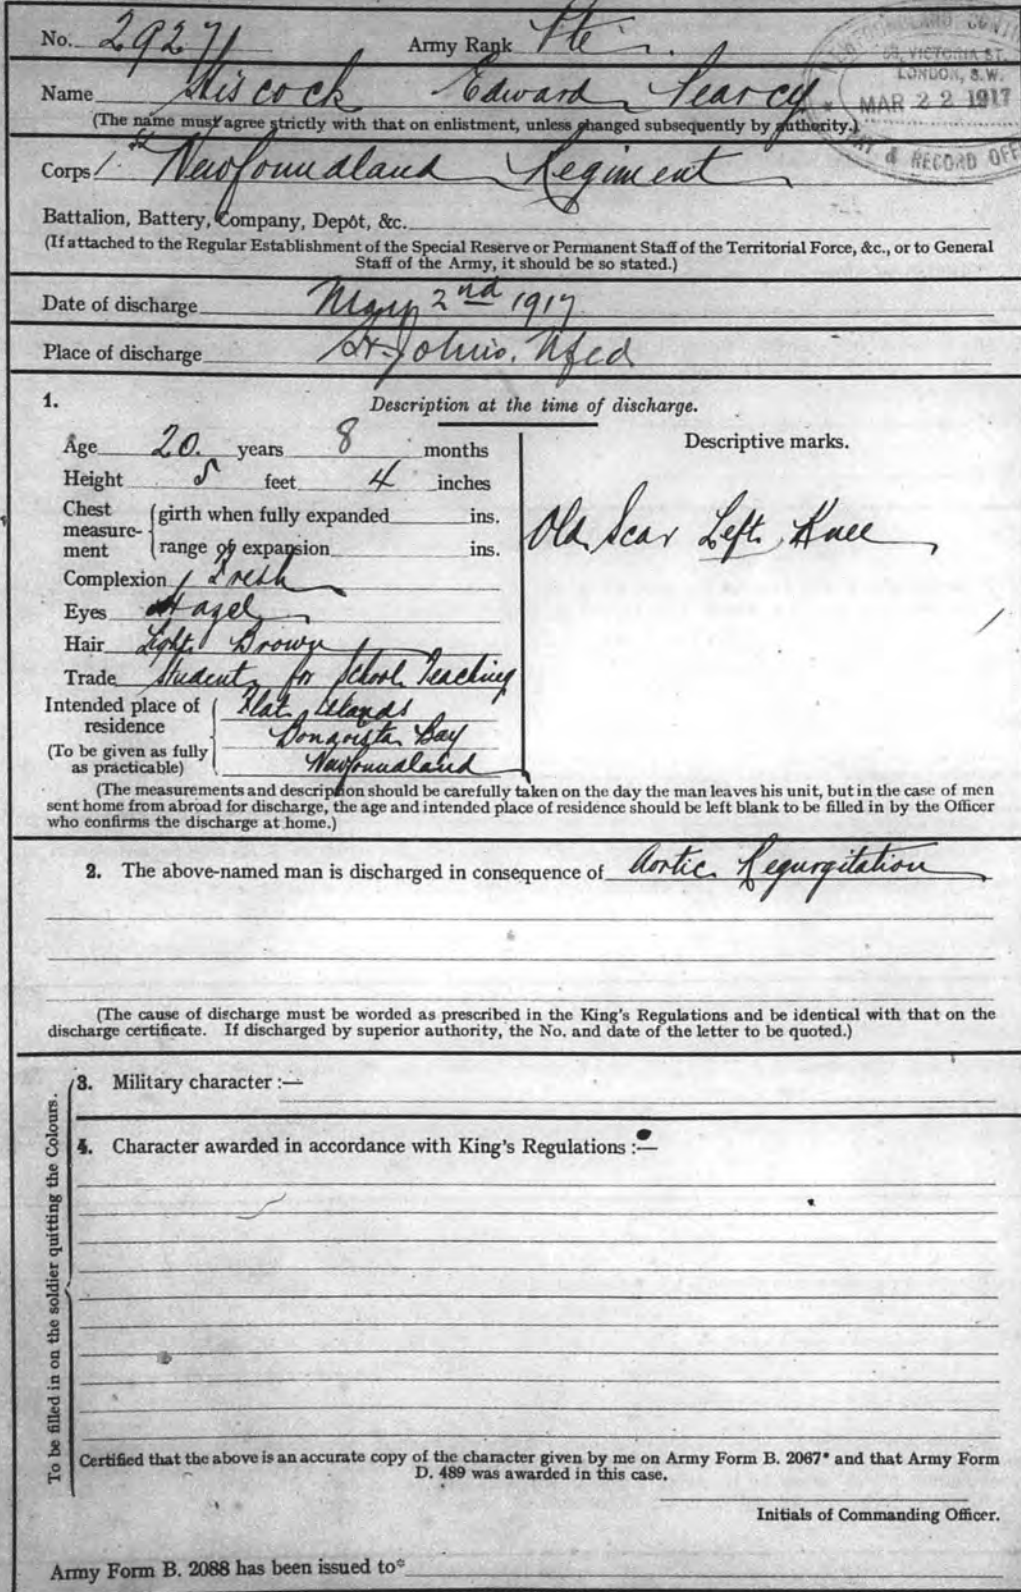 No. 2927 Army Rank Pte.
NEWFOUNDLAND CONTIN
VICTORIA ST.
LONDON, S.W.
MAR 22 1917
& RECORD OFF
Name Hiscock Edward Searcy
(The name must agree strictly with that on enlistment, unless changed subsequently by authority.)
Corps 1st Newfoundland Regiment
Battalion, Battery, Company, Depôt, &c.
(If attached to the Regular Establishment of the Special Reserve or Permanent Staff of the Territorial Force, &c., or to General
Staff of the Army, it should be so stated.)
Date of discharge May 2nd 1917
Place of discharge St. John's, Nfld
1. Description at the time of discharge.
Age 20 years 8 months
Descriptive marks.
Height 5 feet 4 inches
Chest measure-ment girth when fully expanded ins.
range of expansion ins.
Old Scar Left Knee
Complexion Fresh
Eyes Hazel
Hair Light Brown
Trade Student for School Teaching
Intended place of residence Flat Islands
Bonavista Bay
(To be given as fully as practicable) Newfoundland
(The measurements and description should be carefully taken on the day the man leaves his unit, but in the case of men
sent home from abroad for discharge, the age and intended place of residence should be left blank to be filled in by the Officer
who confirms the discharge at home.)
2. The above-named man is discharged in consequence of Aortic Regurgitation
(The cause of discharge must be worded as prescribed in the King's Regulations and be identical with that on the
discharge certificate. If discharged by superior authority, the No. and date of the letter to be quoted.)
To be filled in on the soldier quitting the Colours.
3. Military character :—
4. Character awarded in accordance with King's Regulations :—
Certified that the above is an accurate copy of the character given by me on Army Form B. 2067* and that Army Form
D. 489 was awarded in this case.
Initials of Commanding Officer.
Army Form B. 2088 has been issued to*